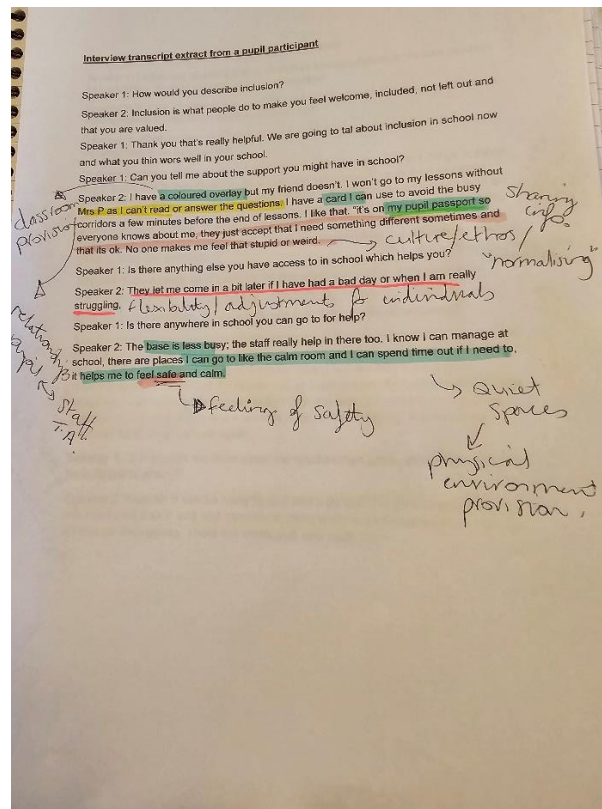 Interview transcript extract from a pupil participant
Speaker 1: How would you describe inclusion?
Speaker 2: Inclusion is what people do to make you feel welcome, included, not left out and
that you are valued.
Speaker 1: Thank you that's really helpful. We are going to tal about inclusion in school now
and what you thin wors well in your school.
Speaker 1: Can you tell me about the support you might have in school?
Speaker 2: I have a coloured overlay but my friend doesn't. I won't go to my lessons without
Mrs P as I can't read or answer the questions. I have a card I can use to avoid the busy
corridors a few minutes before the end of lessons. I like that. "it's on my pupil passport so
everyone knows about me, they just accept that I need something different sometimes and
that its ok. No one makes me feel that stupid or weird.
classroom
provision
Sharing
info.
culture/ethos/
"normalising"
Speaker 1: Is there anything else you have access to in school which helps you?
Speaker 2: They let me come in a bit later if I have had a bad day or when I am really
struggling.
flexibility/adjustments for individuals
Speaker 1: Is there anywhere in school you can go to for help?
Speaker 2: The base is less busy; the staff really help in there too. I know i can manage at
school, there are places I can go to like the calm room and I can spend time out if I need to,
it helps me to feel safe and calm.
staff
T.A.
feeling of safety
Quiet
spaces
physical
environment
provision.